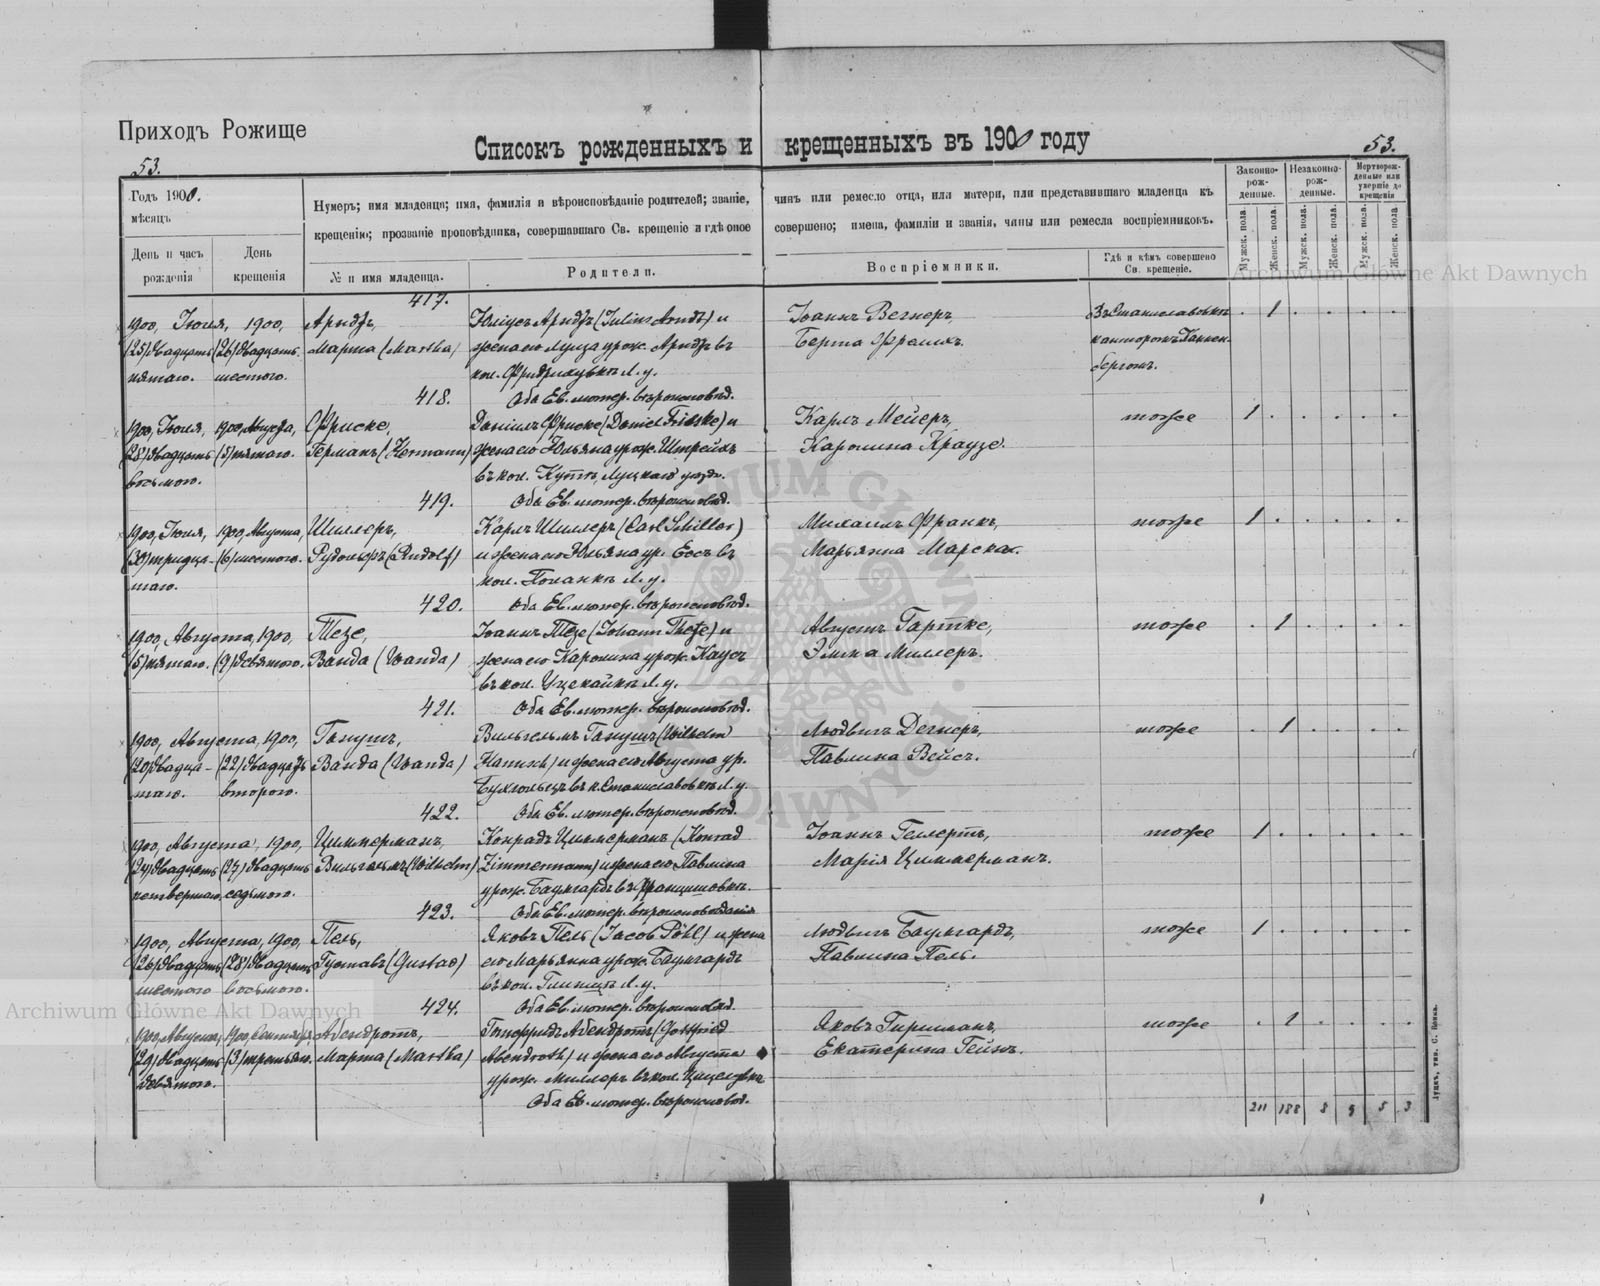 Приходъ Рожище
Списокъ рожденныхъ и крещенныхъ въ 1900 году
53.
53.
Годъ 1900.
мѣсяцъ
День и часъ рожденія
День крещенія
Нумеръ; имя младенца; имя, фамилія и вѣроисповѣданіе родителей; званіе, чинъ или ремесло отца, или матери, или представившаго младенца къ
крещенію; прозваніе проповѣдника, совершавшаго Св. крещеніе и гдѣ оное совершено; имена, фамиліи и званія, чины или ремесла воспріемниковъ.
№ и имя младенца.
Родители.
Воспріемники.
Гдѣ и кѣмъ совершено Св. крещеніе.
Законно-рож-денные.
Незаконно-рож-денные.
Мертворож-денные или умершіе до крещенія
Мужск. пола.
Женск. пола.
Мужск. пола.
Женск. пола.
Мужск. пола.
Женск. пола.
Archiwum Główne Akt Dawnych
417.
1900, Іюля, 1900, Арндтъ, Юліусъ Арндтъ (Julius Arndt) и Іоаннъ Вегнеръ, Въ Станиславовкѣ . 1 . . . .
(25) двадцать (26) двадцать Марта (Martha) жена его Луиза урож. Арндтъ въ Берта Фрелихъ. канторомъ
пятаго. шестого. кол. Л. у. бергомъ.
418. Оба Ев. лютер. вѣроисповѣд.
1900, Іюля, 1900, Августа, Фриске, Даніилъ Фриске (Daniel Friske) и Карлъ Мейеръ, тоже 1 . . . . .
(28) двадцать (5) пятаго. Германъ (Hermann) жена его Юльяна урож. Штрейхъ Каролина Краузе.
восьмого. въ кол. Луцкаго уѣзд.
419. Оба Ев. лютер. вѣроисповѣд.
1900, Іюля, 1900, Августа, Шиллеръ, Карлъ Шиллеръ (Carl Schiller) Михаилъ Франкъ, тоже 1 . . . . .
(30) тридца- (6) шестого. Рудольфъ (Rudolf) и жена его Юльяна ур. въ Марьянна Марска.
таго. кол. Поланкѣ Л. у.
420. Оба Ев. лютер. вѣроисповѣд.
1900, Августа, 1900, Тезе, Іоаннъ Тезе (Johann Theze) и Августъ Гартке, тоже . 1 . . . .
(5) пятаго. (9) девятого. Ванда (Wanda) жена его Каролина урож. Каусъ Эмма Миллеръ.
въ кол. Л. у.
421. Оба Ев. лютер. вѣроисповѣд.
1900, Августа, 1900, Ганушъ, Вильгельмъ Ганушъ (Wilhelm Людвигъ Дегнеръ, тоже . 1 . . . .
(20) двадца- (22) двадцать Ванда (Wanda) Hanusch) и жена его Августа ур. Павлина Вейсъ.
таго. второго. Бухгольцъ въ к. Станиславовкѣ Л. у.
422. Оба Ев. лютер. вѣроисповѣд.
1900, Августа, 1900, Циммерманъ, Конрадъ Циммерманъ (Konrad Іоаннъ Геллертъ, тоже 1 . . . . .
(24) двадцать (27) двадцать Вильгельмъ (Wilhelm) Zimmermann) и жена его Павлина Марія Циммерманъ.
четвертаго седьмого. урож. Баумгардъ въ Францишовкѣ.
423. Оба Ев. лютер. вѣроисповѣданія
1900, Августа, 1900, Пель, Яковъ Пель (Jacob Pöhl) и жена Людвигъ Баумгардъ, тоже 1 . . . . .
(26) двадцать (28) двадцать Густавъ (Gustav) его Марьянна урож. Баумгардъ Павлина Пель.
шестого восьмого. въ кол. Л. у.
424. Оба Ев. лютер. вѣроисповѣд.
1900, Августа, 1900, Сентября Абендротъ, Готфридъ Абендротъ (Gottfried Яковъ Гиршманъ, тоже . 1 . . . .
(29) двадцать (3) третьяго. Марта (Martha) Abendroth) и жена его Августа Екатерина Гейнъ.
девятого. урож. Миллеръ въ кол.
Оба Ев. лютер. вѣроисповѣд.
211 188 8 9 5 3
Луцкъ, тип. С. Конъ.
Archiwum Główne Akt Dawnych
ARCHIWUM GŁÓWNE AKT DAWNYCH